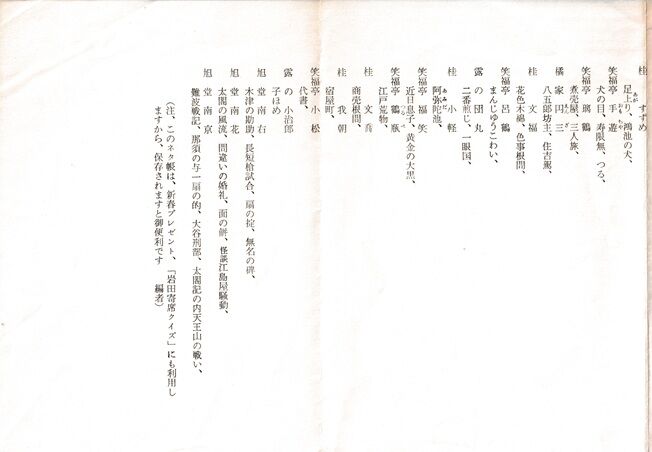 桂　すずめ
足上り、鴻池の犬、
笑福亭　手遊
犬の目、寿限無、つる、
笑福亭　瑞鶴
煮売屋、三人旅、
橘家　円三
八五郎坊主、住吉駕、
桂　文福
花色木綿、色事根問、
笑福亭　呂鶴
まんじゅうこわい、
露の団丸
二番煎じ、一眼国、
桂　小軽
阿弥陀池、
笑福亭　福笑
近日息子、黄金の大黒、
笑福亭　鶴瓶
江戸荒物、
桂　文喬
商売根問、
桂　我朝
宿屋町、
笑福亭　小松
代書、
露の小治郎
子ほめ
旭堂南右
木津の勘助、長短槍試合、扇の掟、無名の碑、
旭堂南花
太閤の風流、間違いの婚礼、面の餅、怪談江島屋騒動、
旭堂南京
難波戦記、那須の与一扇の的、大谷刑部、太閤記の内天王山の戦い、
（注、このネタ帳は、新春プレゼント、「岩田寄席クイズ」にも利用し
ますから、保存されますと御便利です　編者）